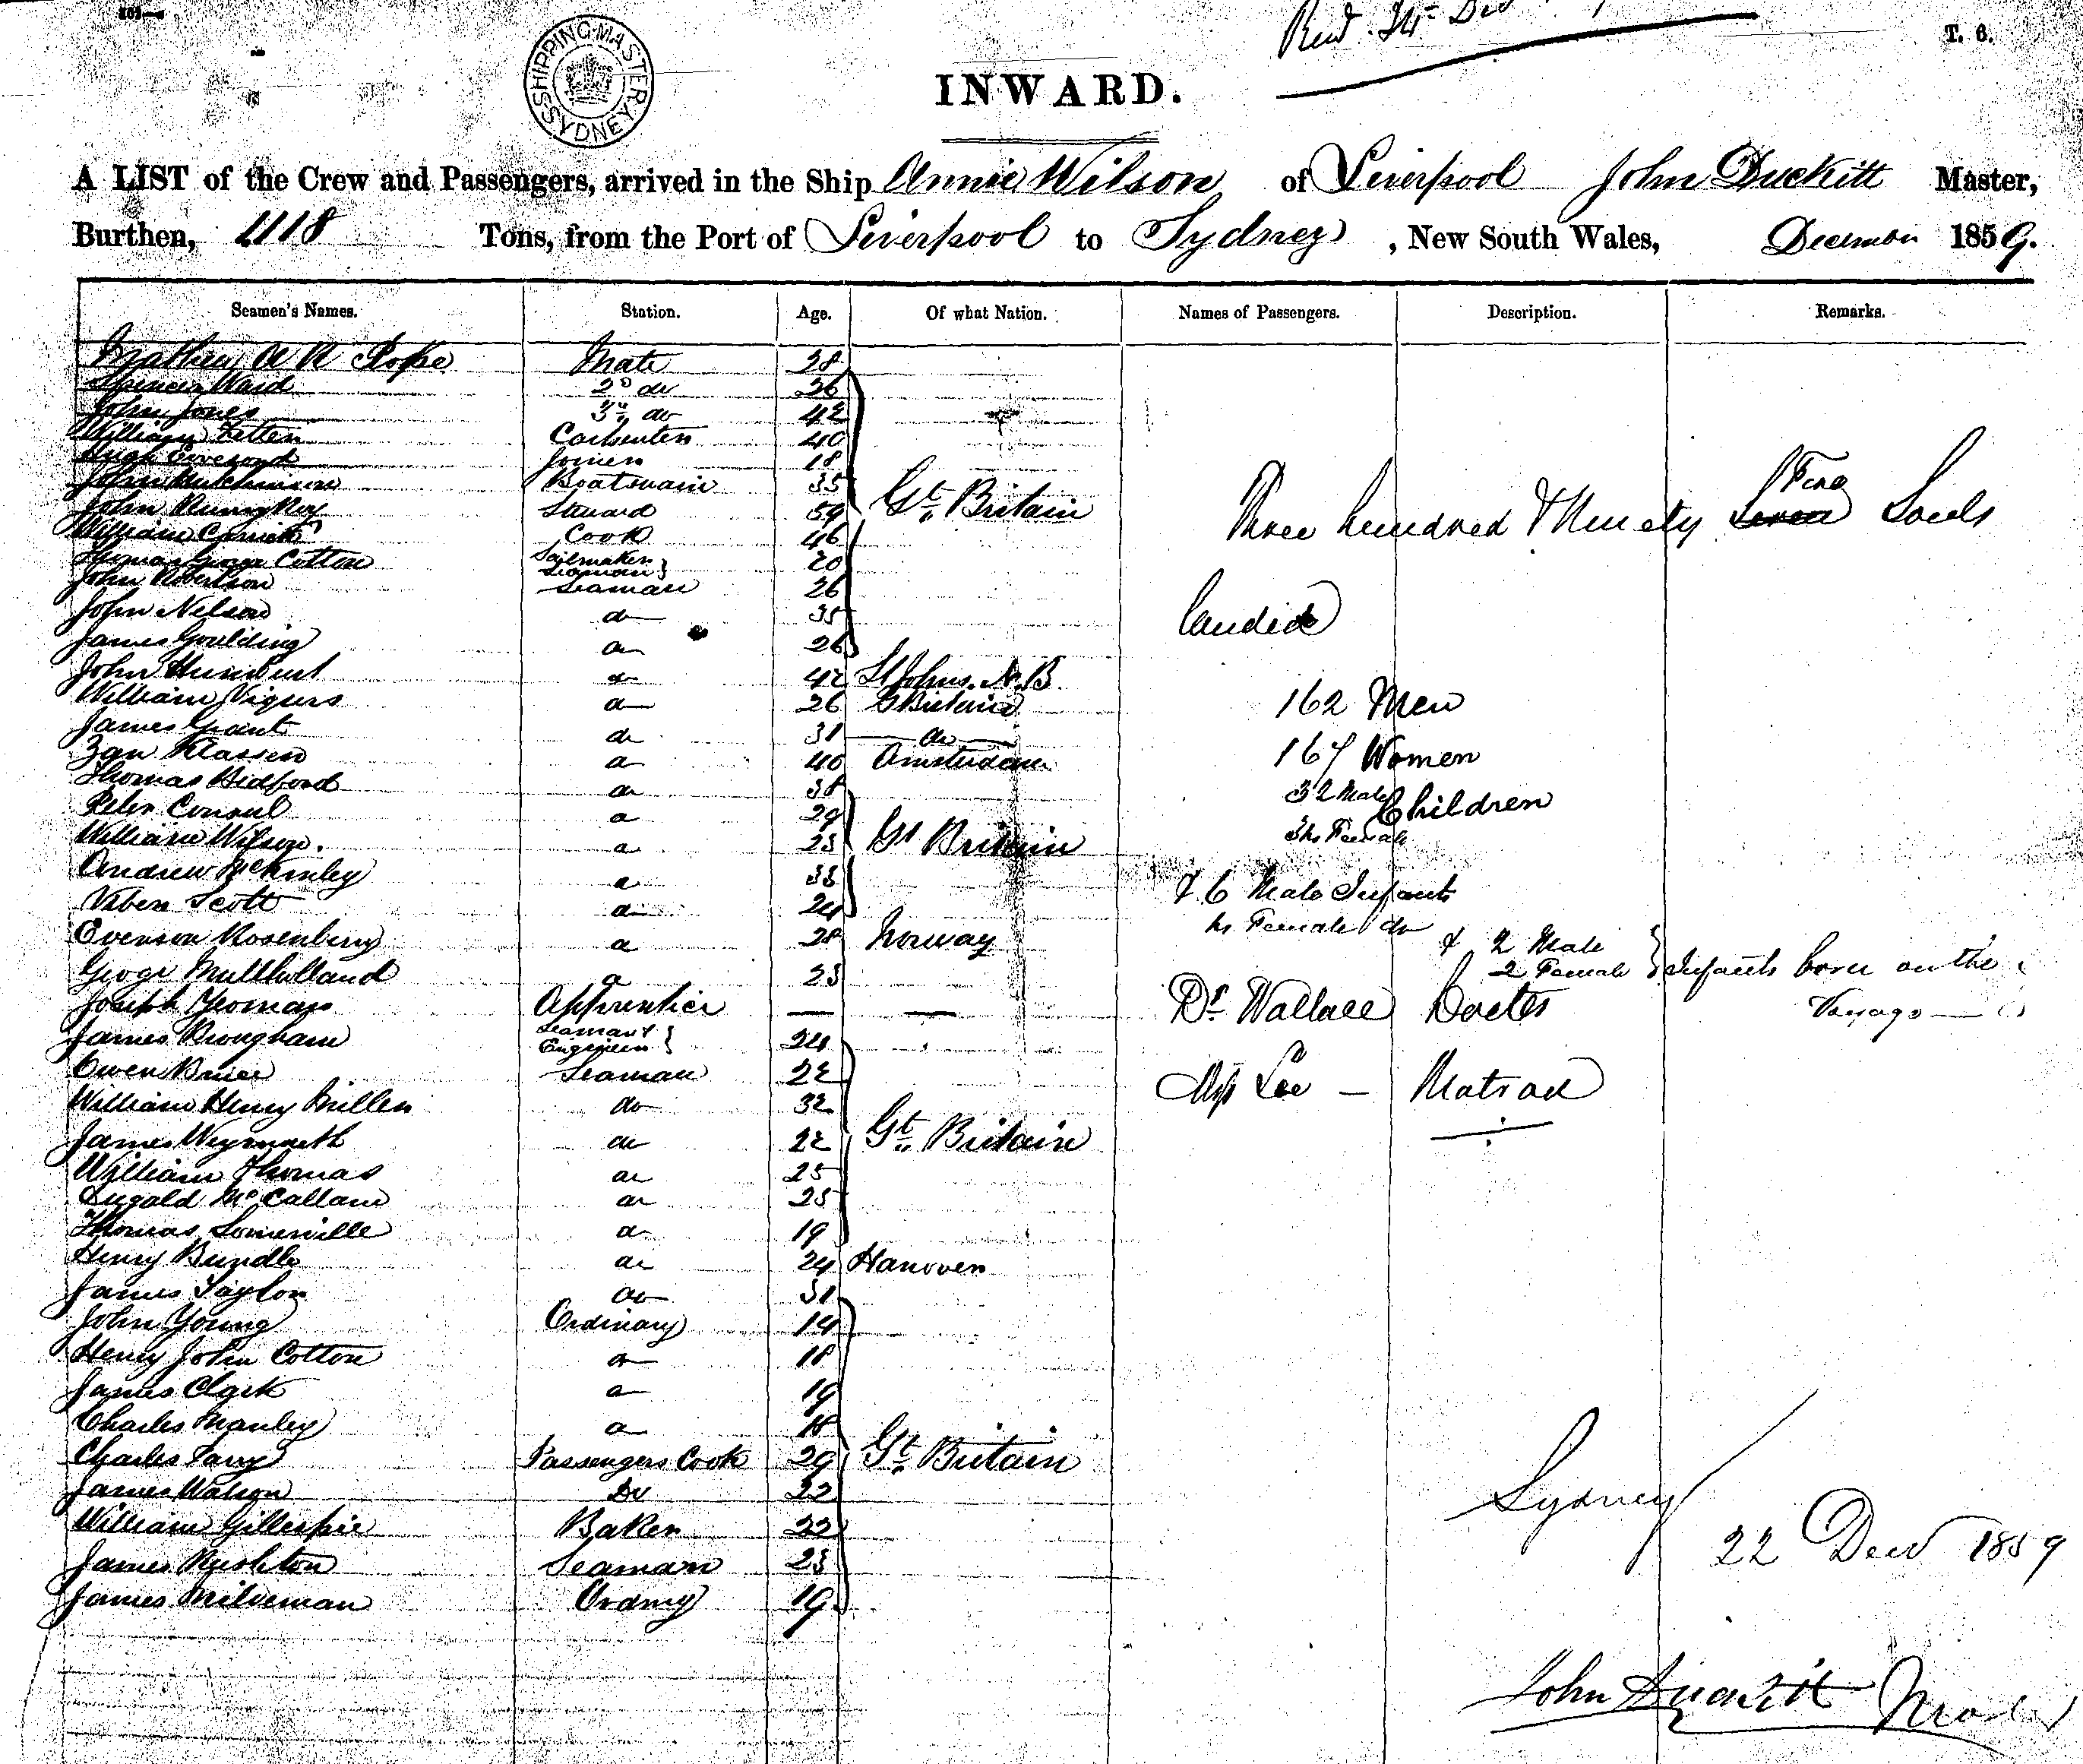 SHIPPING MASTER SYDNEY
T. 6.
INWARD.
A LIST of the Crew and Passengers, arrived in the Ship Annie Wilson of Liverpool John Duckitt Master,
Burthen, 1118 Tons, from the Port of Liverpool to Sydney, New South Wales, December 1859.
Seamen's Names. Station. Age. Of what Nation. Names of Passengers. Description. Remarks.
Mate 28
Spencer Ward 2d do 26
John Jones 3d do 42
William Carpenter 40
Hugh Joiner 18
John Hutchinson Boatswain 35
John Steward 59 Gt. Britain Three hundred & Ninety Seven Five Souls
William Cook 46
Thomas George Cotton Sailmaker Seaman 20
John Robertson Seaman 26
John Nelson do 35 Candick
James Goulding do 26
John do 42 St Johns. N.B.
William Vigurs do 26 G Britain 162 Men
James Grant do 31 do
Zan Klassen do 40 Amsterdam 167 Women
Thomas Bidford do 38 32 Male Children
Peter Consul do 29
William Wilson. do 23 Gt Britain Female
Andrew McKinley do 33
Scott do 24 & 6 Male Infants
Evenson Rosenberry do 28 Norway Female do & 2 Male
George Mullholland do 23 2 Female Infants born on the
Joseph Yeoman Apprentice — — Dr. Wallace Doctor Voyage
James Brougham Seaman & Engineer 24
Owen Seaman 22 Miss Lee — Matron
William Henry Millen do 32
James Weymouth do 22 Gt. Britain
William Thomas do 25
Dugald McCallam do 25
Thomas Somerville do 19
Henry Bundle do 24 Hanover
James Taylor do 31
John Young Ordinary 14
Henry John Cotton do 18
James Clark do 19
Charles Manley do 18
Charles Passengers Cook 29 Gt. Britain
James Watson Do 22 Sydney
William Gillespie Baker 22 22 Decr 1859
James Rushton Seaman 23
James Milveman Ordny 19
John Duckitt Master